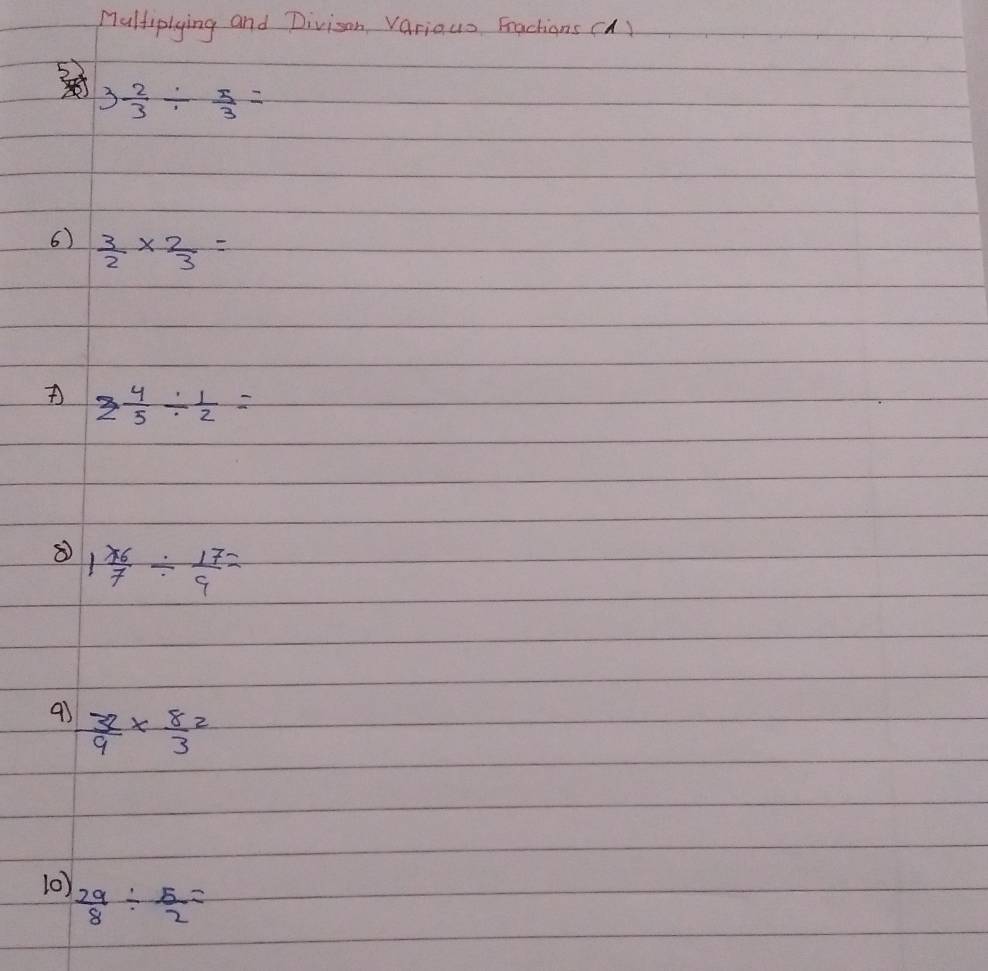 Multiplying and Divison Various Fractions (A)
5) 3 2/3 ÷ 5/3 =
6) 3/2 × 2/3 =
7) 4/5 ÷ 1/2 =
8) 1 6/7 ÷ 17/9 =
9) 32/9 × 8/3 =
10) 29/8 ÷ 5/2 =